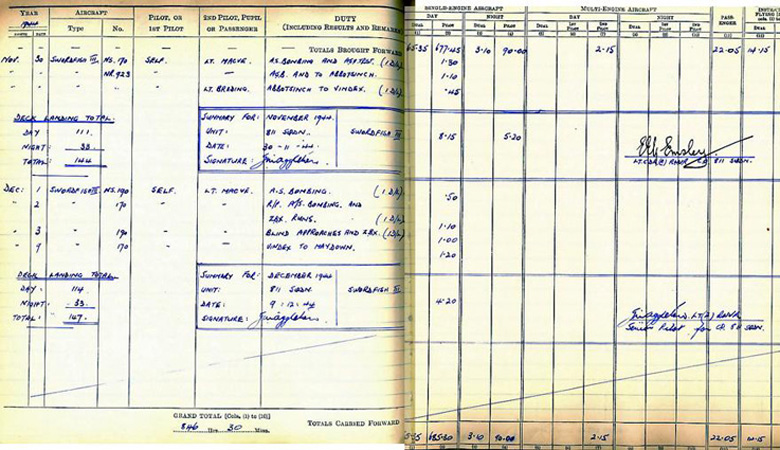 YEAR AIRCRAFT PILOT, OR 1ST PILOT 2ND PILOT, PUPIL OR PASSENGER DUTY (INCLUDING RESULTS AND REMARKS) SINGLE-ENGINE AIRCRAFT MULTI-ENGINE AIRCRAFT
1944 Type No. DAY NIGHT DAY NIGHT PASSENGER
TOTALS BROUGHT FORWARD 65.35 677.45 3.10 90.00 2.15 22.05 14.15
NOV. 30 SWORDFISH III NS.170 SELF. LT. MACVE. A.S. BOMBING AND (1 D/L) 1.30
" " " NR.923 " " AND TO ABBOTSINCH. 1.10
" " " " " LT. BREDING. ABBOTSINCH TO VINDEX. (1 D/L) .45
DECK LANDING TOTAL. SUMMARY FOR: NOVEMBER 1944. SWORDFISH III
DAY 111. UNIT: 811 SQDN. 8.15 5.20
NIGHT: 33. DATE: 30-11-44.
TOTAL: 144 SIGNATURE: LT.CDR(A) RNVR C.O. 811 SQDN.
DEC: 1 SWORDFISH III NS.190 SELF. LT. MACVE. A.S. BOMBING. (1 D/L) .50
" 2 " 170 " " R/P. A/S. BOMBING. AND
RUNS. (1 D/L) 1.10
" 3 " 190 " " BLIND APPROACHES AND (1 D/L) 1.00
" 9 " 170 " " VINDEX TO MAYDOWN. 1.20
DECK LANDING TOTAL. SUMMARY FOR: DECEMBER 1944
DAY: 114 UNIT: 811 SQDN. SWORDFISH III
NIGHT: 33. DATE: 9.12.44 4.20
TOTAL: 147. SIGNATURE: LT(A) RNVR
Senior Pilot for CO 811 SQDN.
GRAND TOTAL [Cols. (1) to (10)]
846 Hrs. 30 Mins. TOTALS CARRIED FORWARD 685.30 3.10 90.00 2.15 22.05 14.15